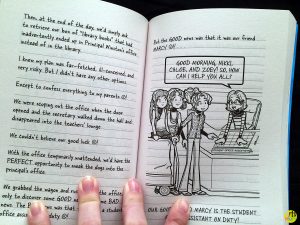 Then, at the end of the day, we'd simply ask
to retrieve our box of "library books" that had
inadvertently ended up in Principal Winston's office
instead of in the library.
I knew my plan was far-fetched, ill-conceived, and
very risky. But I didn't have any other options.
Except to confess everything to my parents
We were scoping out the office when the door
opened and the secretary walked down the hall and
disappeared into the teachers' lounge.
We couldn't believe our good luck
With the office temporarily unattended, we'd have the
PERFECT opportunity to sneak the dogs into the
principal's office.
We grabbed the wagon and
only to discover some GOOD BAD
news. The B news was that a student
office assis duty
but the GOOD news was that it was our friend
MARCY
GOOD MORNING, NIKKI,
CHLOE, AND ZOEY! SO, HOW
CAN I HELP YOU ALL?
OUR GOO MARCY IS THE STUDENT
ASSISTANT ON DUTY!